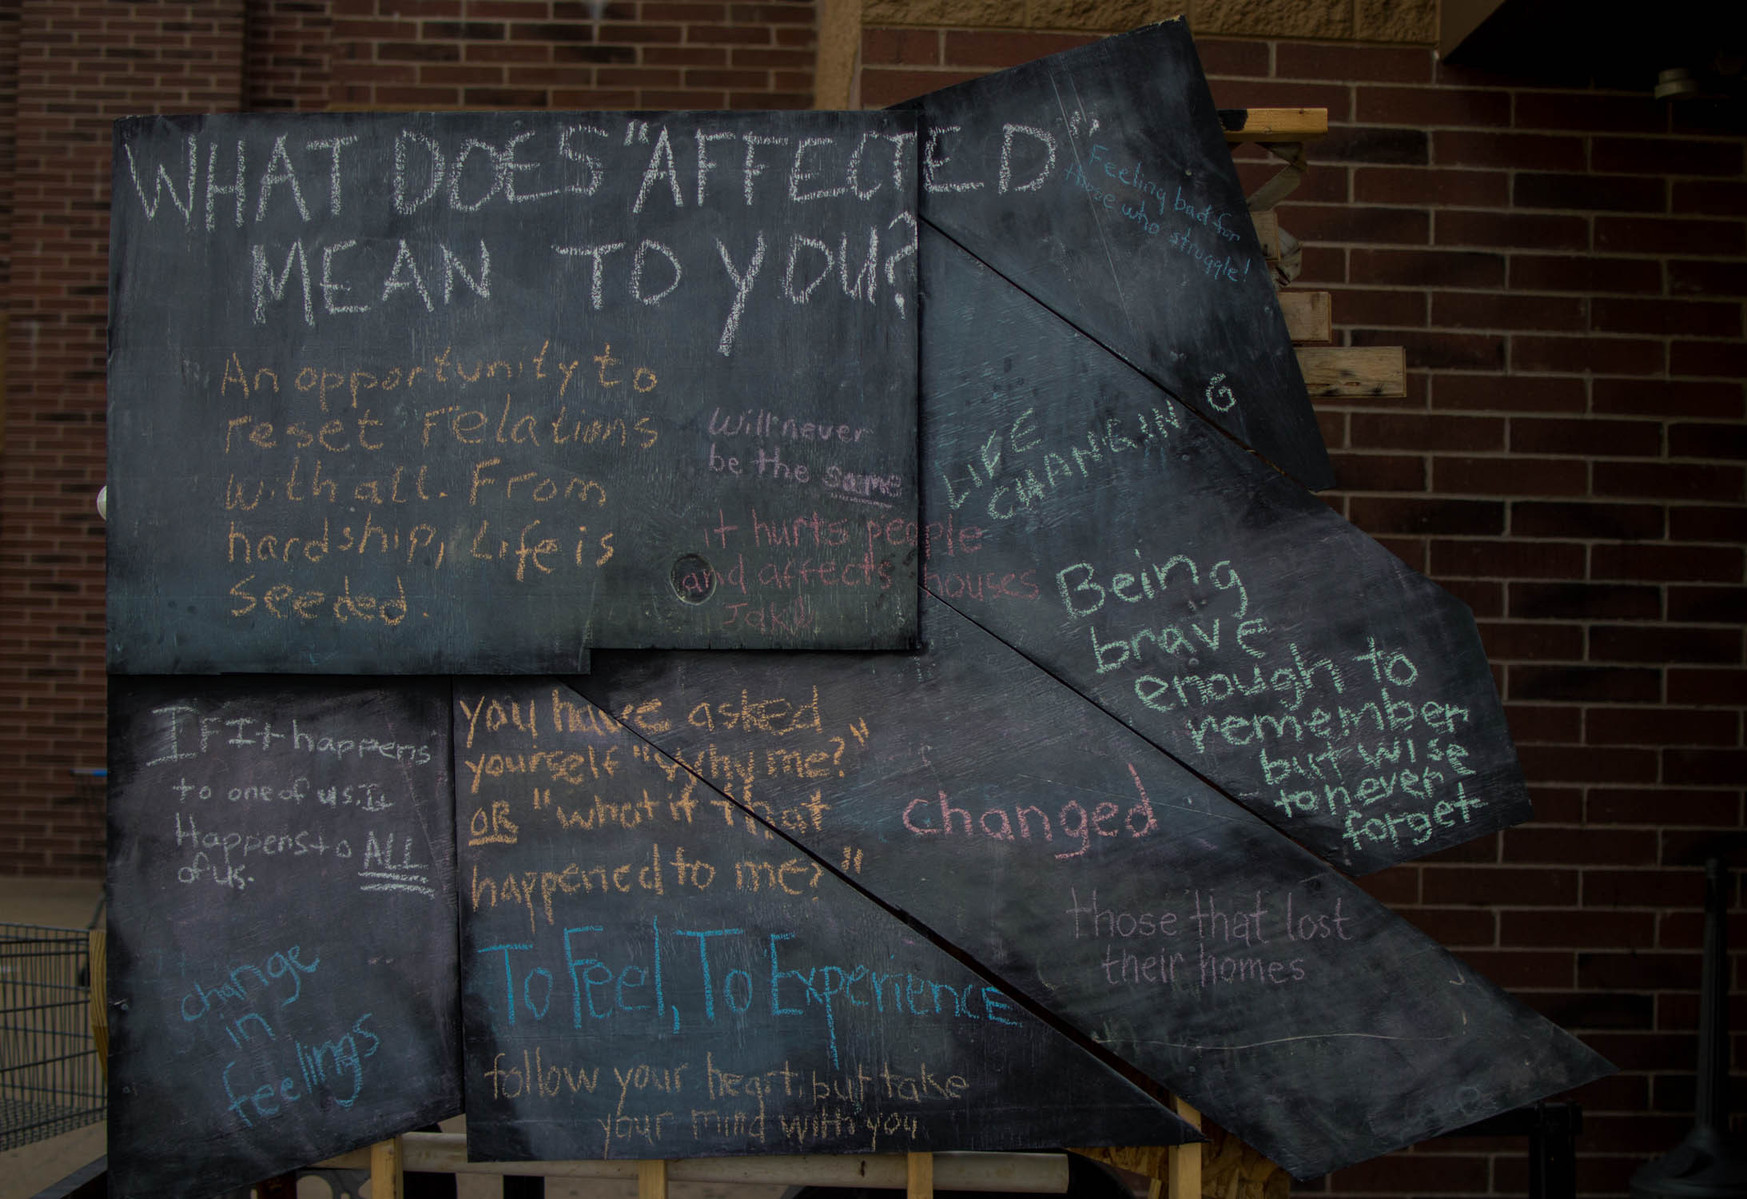 WHAT DOES "AFFECTED"
MEAN TO YOU?
Feeling bad for
those who struggle!
An opportunity to
reset relations
with all. From
hardship, Life is
seeded.
Will never
be the same
LIFE
CHANGING
it hurts people
and affects houses
Jake
Being
brave
enough to
remember
but wise
to never
forget
IF It happens
to one of us. It
Happens to ALL
of us.
you have asked
yourself "why me?"
OR "what if that
happened to me?"
changed
those that lost
their homes
change
in
feelings
To Feel, To Experience
follow your heart, but take
your mind with you